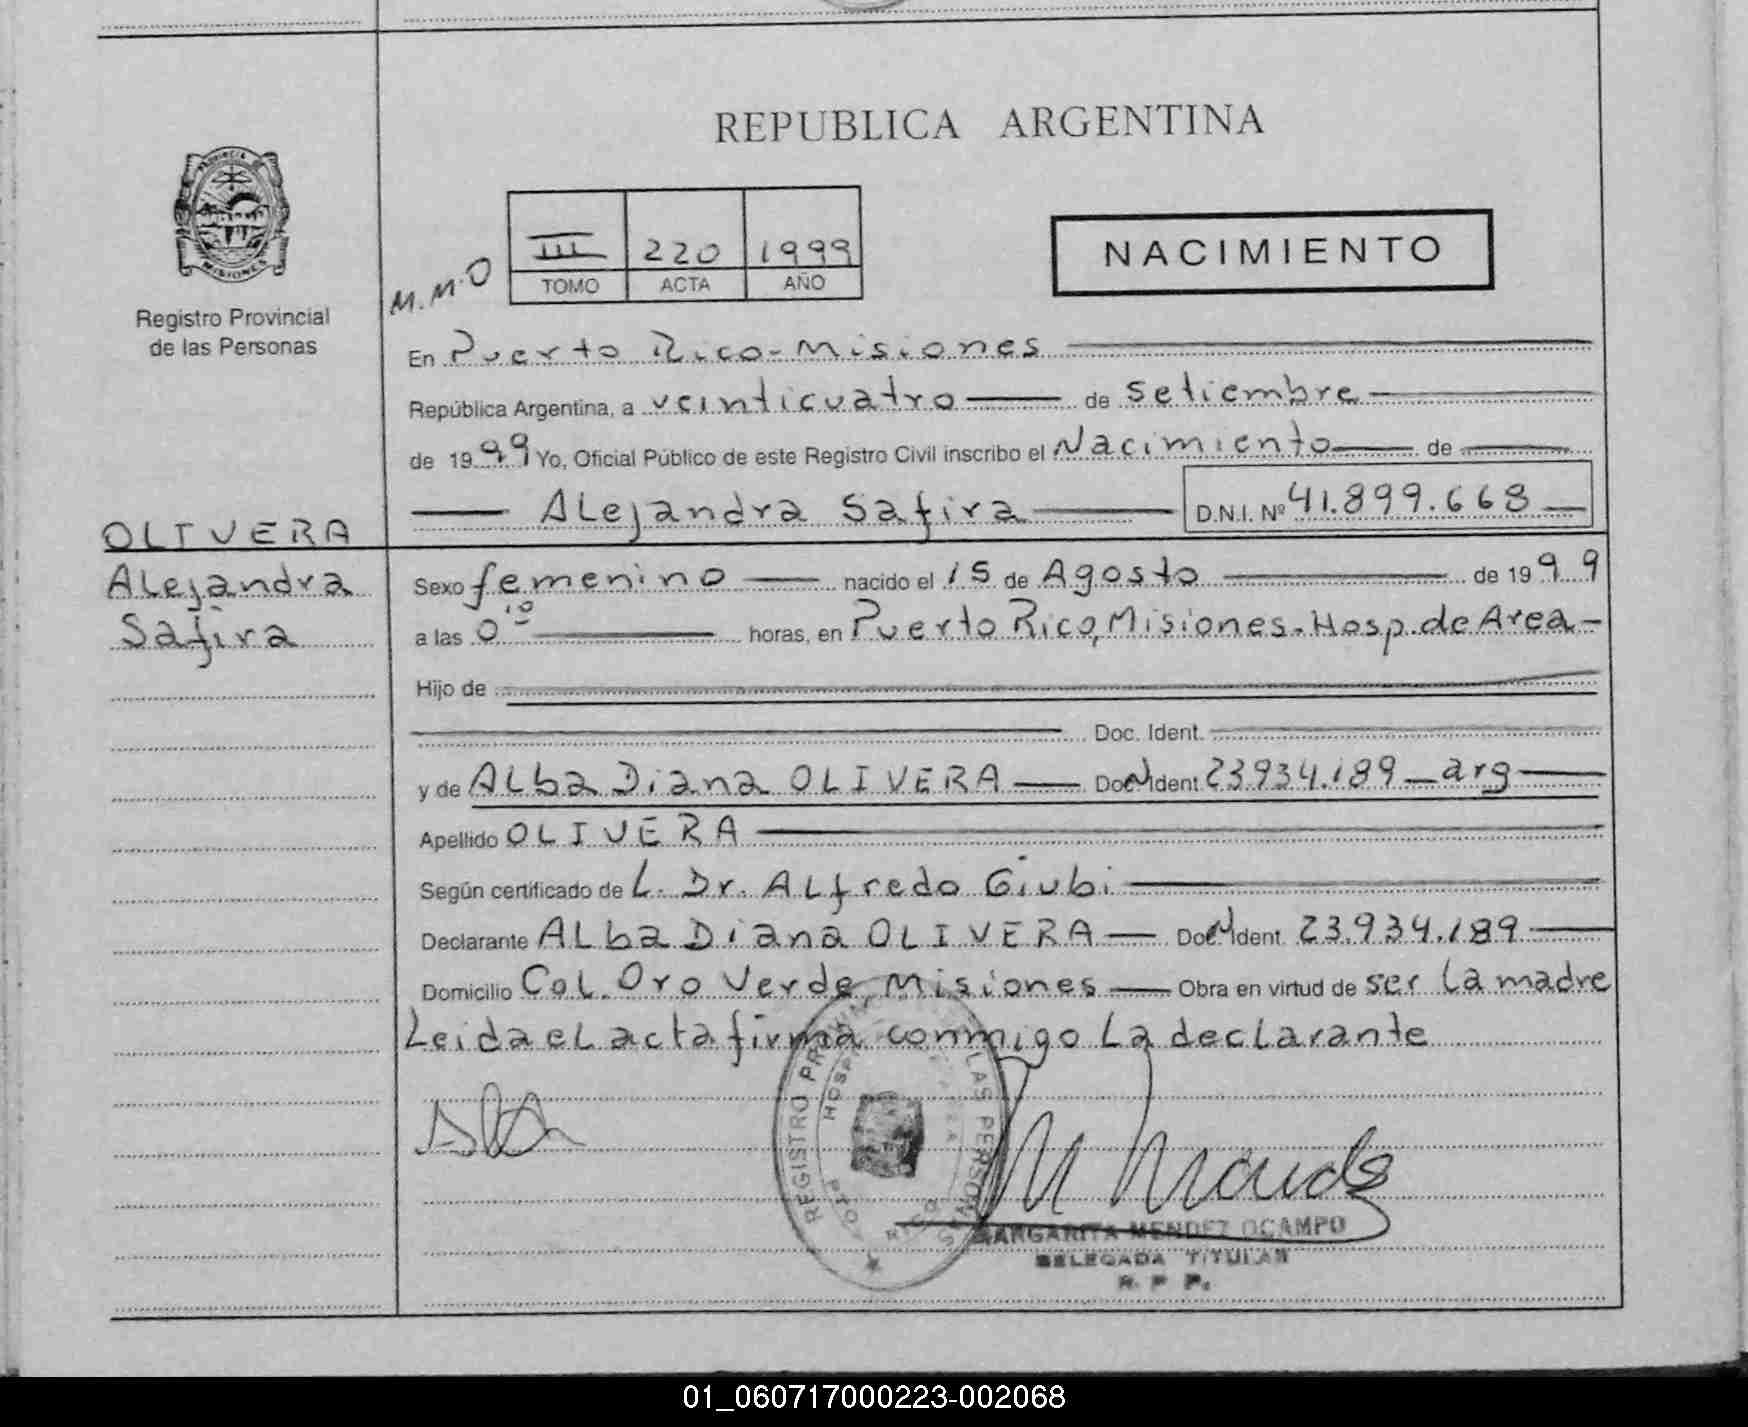 REPUBLICA ARGENTINA
PROVINCIA DE
MISIONES
Registro Provincial
de las Personas
III 220 1999
TOMO ACTA AÑO
M.M.O
NACIMIENTO
En Puerto Rico-Misiones
República Argentina, a veinticuatro de setiembre
de 1999 Yo, Oficial Público de este Registro Civil inscribo el Nacimiento de
Alejandra Safira D.N.I. Nº 41.899.668
OLIVERA
Alejandra
Safira
Sexo femenino nacido el 15 de Agosto de 1999
a las 0 10 horas, en Puerto Rico, Misiones. Hosp. de Area
Hijo de
Doc. Ident.
y de Alba Diana OLIVERA Doc. Ident 23.934.189 arg
Apellido OLIVERA
Según certificado de L. Dr. Alfredo Giubi
Declarante Alba Diana OLIVERA Doc. Ident. 23.934.189
Domicilio Col. Oro Verde, Misiones Obra en virtud de ser la madre
Leida el acta firma conmigo la declarante
REGISTRO LAS PERSONAS
MARGARITA MENDEZ OCAMPO
DELEGADA TITULAR
R. P. P.
01_060717000223-002068